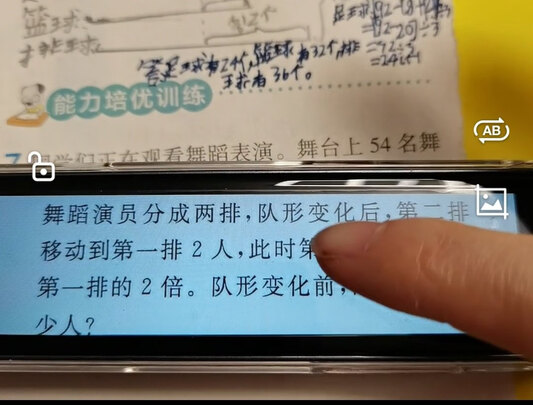 篮球:
排球:
答:足球有24个,篮球有32个,排
球有36个。
=24(个)
能力培优训练
们正在观看舞蹈表演。舞台上 54 名舞
AB
舞蹈演员分成两排,队形变化后,第二排
移动到第一排 2 人,此时第
第一排的 2 倍。队形变化前,
少人?